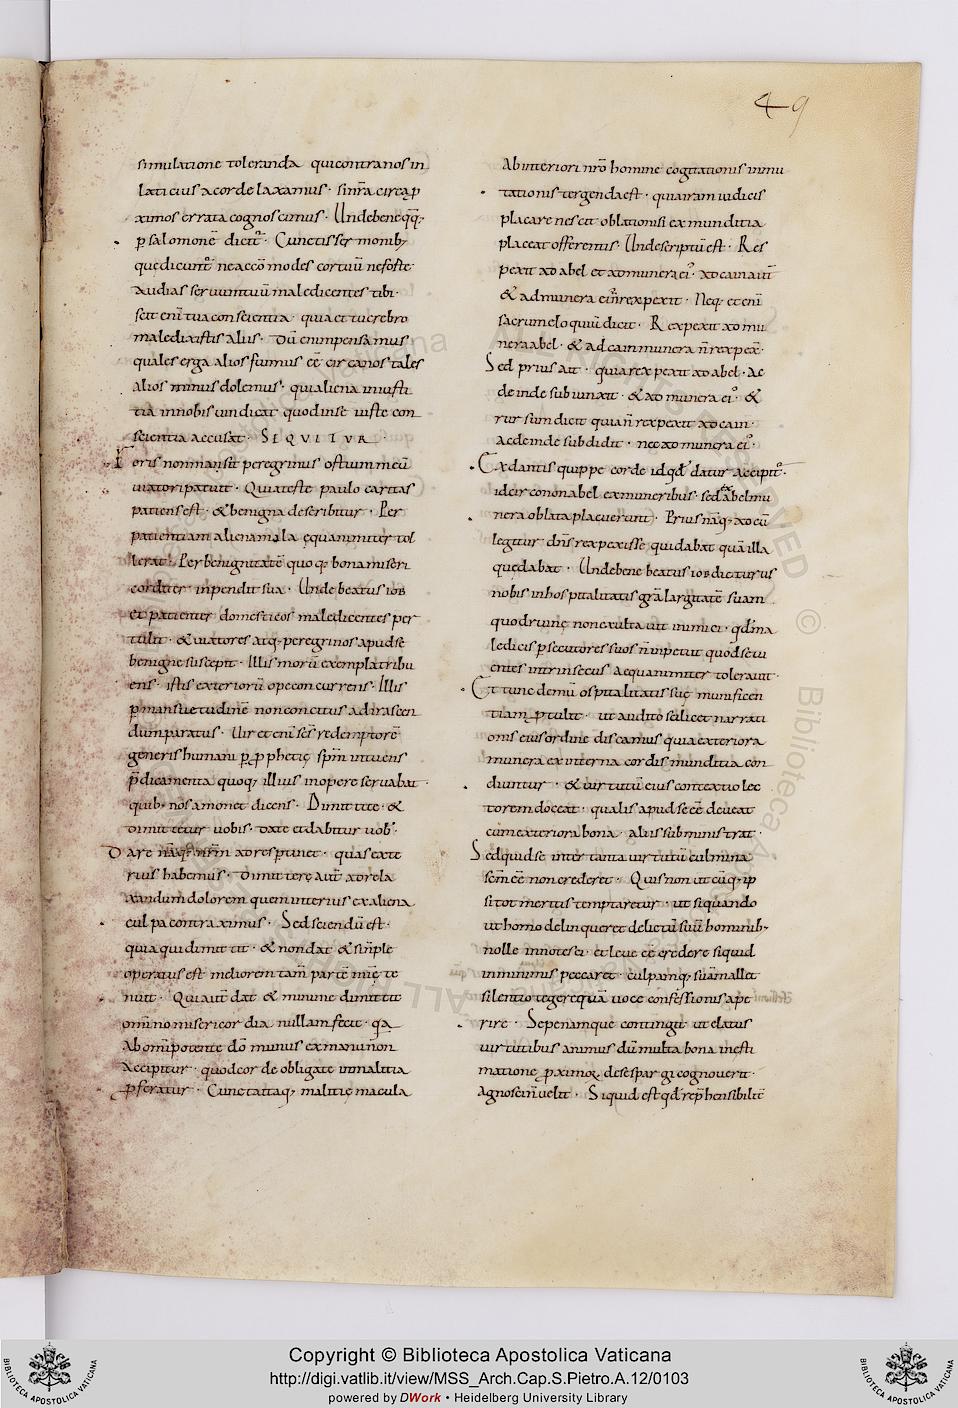 49
simulatione toleranda quicontranosin
laticius acorde laxamus · sin̄ra circa ꝓ
ximos errata cognoscimus · Undebeneqq;
ꝑ salomonē dicit᷒ · Cunctis sermonib;
quę dicunt᷒ ne accōmodes cortuū nefoste
audias seruumtuū maledicentes tibi ·
scit eni᷒ tua conscientia · quia et tu crebro
maledixistis aliis · Dū enim pensamus
quales erga alios fuimus eē circanos tales
alios minus dolemus · quialiena iniusti
tia innobis uindicat quodinse iuste con
scientia accusat · SEQUITUR ·
Foris nonmansit peregrinus ostium meū
uiatori patuit · Quia teste paulo caritas
patiens est · & benigna describitur · Per
patientiam aliena mala ęquanimiter tol
lerat · Per benignitatē quoq; bona miseri
corditer inpendit sua · Unde beatus iob
et patienter domesticos maledicentes per
tulit · & uiatores atq; peregrinos apudse
benigne suscepit · Illis morū exempla tribu
ens · istis exteriorū ope concurrens · Illis
ꝑ mansuetudinē non concitus ad irascen
dum paratus · Uir et eni᷒ sc̄s redemptorē
generis humani ꝑ ꝓphetię sp̄m intuens
p̄dicamenta quoq; illius in opere seruabat ·
quib; nos amonet dicens · Dimittite · &
dimittetur uobis · date et dabitur uob᷒ ·
Dare nāq; nr̄m ad res ptinet · quas exte
rius habemus · dimitterę aut̄ ad rela
xandum dolorem quem interius ex aliena
culpa contraximus · Sed sciendū est ·
quia qui dimittit · & non dat & si n̄ ple
operatus est meliorem tam̄ partē mię te
nuit · Qui aut̄ dat & minime dimittit
omīno misericordia nullam fecit · qa
Ab omīpotente dō munus ex manu non
Accipitur · quod cor de obligate in malitia
ꝓferatur · Cunctattaq; malitię macula
Ab interiori nr̄o homine cogitationis inmu
tationis tergenda est · quia iram iudicis
placare nescit oblatio nisi ex munditia
placeat offerentis · Unde scriptū est · Res
pexit ad abel et ad munera ei᷒ · ad cain aut̄
& ad munera ei᷒ n̄ respexit · Neq; et eni᷒
sacrum eloquiū dicit · Respexit ad mu
nera abel · & ad cain munera n̄ respex̄ ·
Sed prius ait · quia respexit ad abel · Ac
deinde subiunxit · & ad munera ei᷒ · &
rursum dicit quia n̄ respexit ad cain ·
ac deinde subdidit · nec ad munera ei᷒ ·
Ex dantis quippe corde id qd̄ datur accipit᷒ ·
idcirco non abel ex muneribus · sed ex abel mu
nera oblata placuerunt · Prius nāq; ad eū
legitur dn̄s respexisse qui dabat quā illa
quę dabat · Unde bene beatus iob dicturus
nobis in hospitalitatis grā largitatē suam
quod ruinę non exultauit inimici · qd̄ ma
ledicis ꝑsecutores suos n̄ inpetiit quod seui
entes intrinsecus aequanimiter tolerauit ·
Et tunc demū ospitalitatis suę munificen
tiam ꝓtulit · ut audito scilicet narrati
onis eius ordine discamus quia exteriora
munera ex interna cordis munditia con
diuntur · & uirtutū eius contextio lec
torem doceat · qualis apud se eē debeat
cum exteriora bona · aliis subministrat ·
Sed quid se inter tanta uirtutū culmina
sem̄ eē non crederet · Quis non ut cūq; ip
si tot meritis temptaretur · ut si quando
ut homo delinqueret delictū suū hominib;
nolle innotesci · et leue eē credere si quid
in minimis peccaret · culpamq; suam mallet
silentio tegere quā uoce confessionis ape
rire · Sepe namque contingit ut elatus
uirtutibus animus dū multa bona inesti
matione ꝓximoꝝ de se spargi cognouerit ·
Agnosci n̄ uelit · Si quid est qd̄ rep̄hensibilit̄
Copyright © Biblioteca Apostolica Vaticana
http://digi.vatlib.it/view/MSS_Arch.Cap.S.Pietro.A.12/0103
powered by DWork • Heidelberg University Library